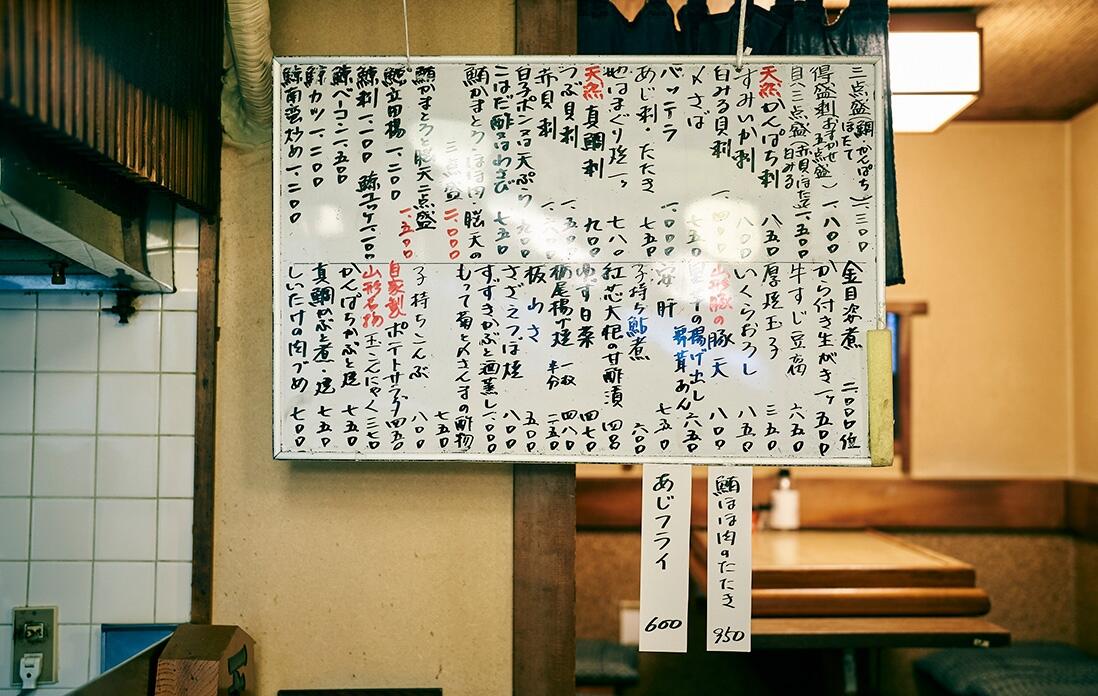 三点盛(鯛かんぱちほたて) 一、三〇〇
得盛刺(おまかせ五点盛) 一、八〇〇
貝三点盛(赤貝ほたて白みる) 一、五〇〇
天然かんぱち刺 八五〇
すみいか刺 八五〇
白みる貝刺 一、四〇〇
〆さば 七五〇
バッテラ 一、〇〇〇
あじ刺・たたき 七五〇
地はまぐり焼一ヶ 七八〇
天然真鯛刺 九〇〇
つぶ貝刺
赤貝刺
白子ポン又は天ぷら 九〇〇
こはだ酢又はわさび 七五〇
鮪かまとろ・ほほ肉・脳天の三点盛 二、〇〇〇
鮪かまとろと脳天二点盛 一、五〇〇
鯨立田揚 一、二〇〇
鯨刺 一、一〇〇 鯨ユッケ 一、一〇〇
鯨ベーコン 一、五〇〇
鯨カツ 一、二〇〇
鯨南蛮炒め 一、二〇〇
金目姿煮 二、〇〇〇位
から付き生がき一ヶ 五〇〇
牛すじ豆腐 六五〇
厚焼玉子 三五〇
いくらおろし 八五〇
山形豚の豚天 八〇〇
の揚げ出し 茸あん 六五〇
安肝 七五〇
子持ち鮎煮 六〇〇
紅芯大根の甘酢漬
白菜 四七〇
栃尾揚げ焼 一枚 四八〇 半分 二五〇
板わさ 五〇〇
さざえつぼ焼 八〇〇
すずきかぶと酒蒸し 一、〇〇〇
もって菊と〆さんまの酢物 七五〇
子持ちこんぶ 八〇〇
自家製ポテトサラダ 四五〇
山形名物玉こんにゃく 三七〇
かんぱちかぶと焼 七五〇
真鯛かぶと煮・焼 七五〇
しいたけの肉づめ 七〇〇
鮪ほほ肉のたたき 950
あじフライ 600